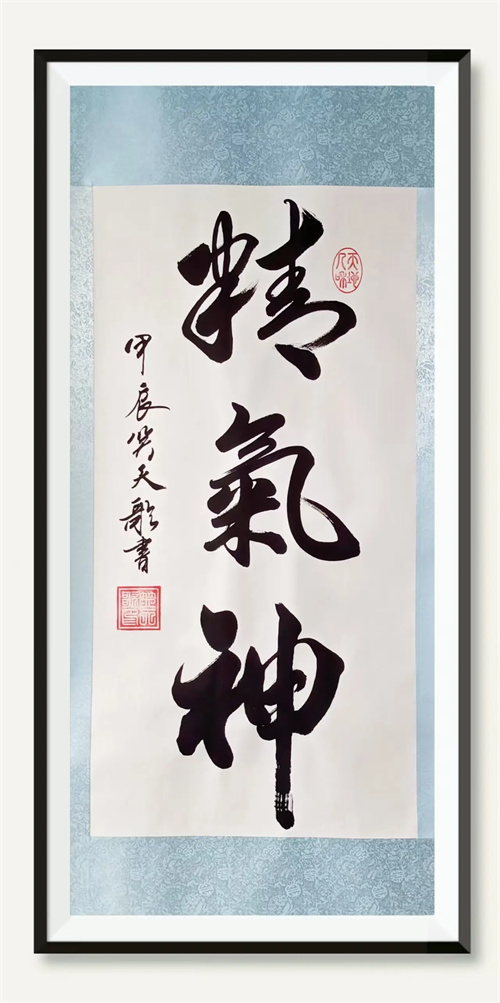 精氣神
甲辰吳天歌書